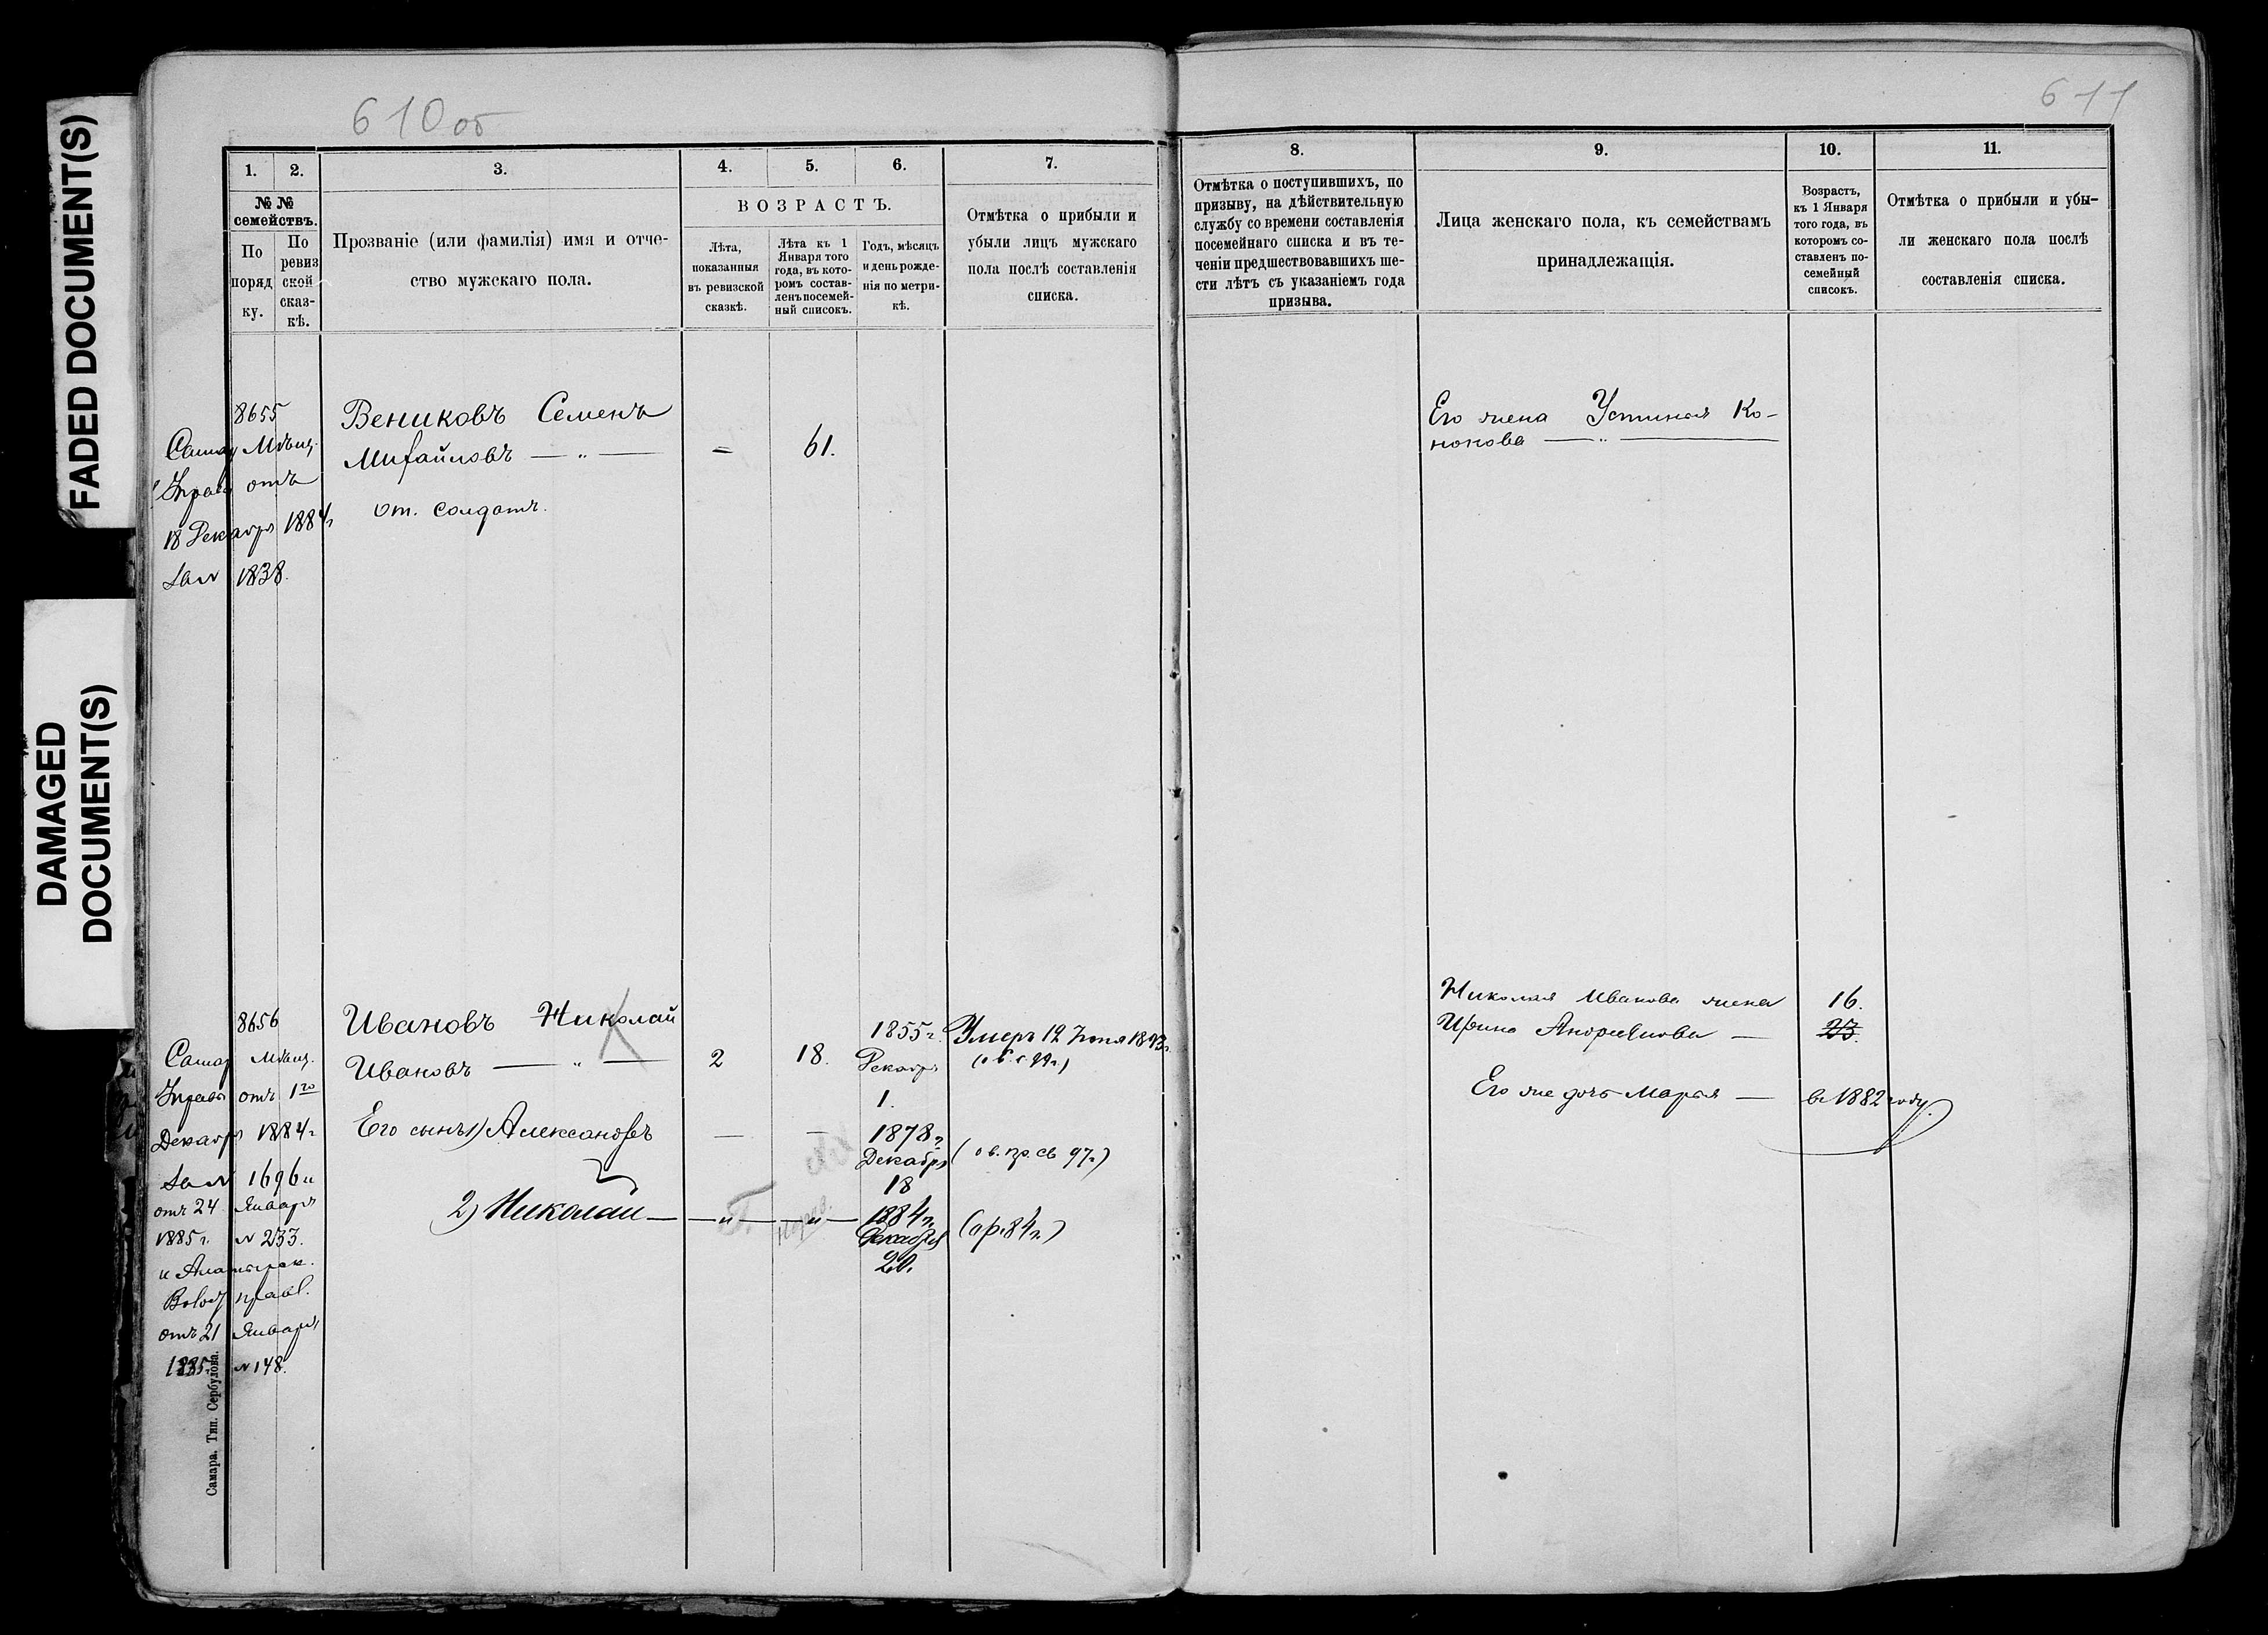 FADED DOCUMENT(S)
DAMAGED
DOCUMENT(S)
610 об
1.
2.
3.
4.
5.
6.
7.
№ №
семействъ.
По
поряд
ку.
По
ревиз
ской
сказ-
кѣ.
Прозваніе (или фамилія) имя и отче-
ство мужскаго пола.
ВОЗРАСТЪ.
Лѣта,
показанныя
въ ревизской
сказкѣ.
Лѣта къ 1
Января того
года, въ кото-
ромъ состав-
ленъ посемей-
ный списокъ.
Годъ, мѣсяцъ
и день рожде-
нія по метри-
кѣ.
Отмѣтка о прибыли и
убыли лицъ мужскаго
пола послѣ составленія
списка.
8655
Самар Мѣщ.
Управ отъ
18 Декабря 1884 г
за № 1838.
Вениковъ Семенъ
Михайловъ — „ —
от. солдатъ.
—
61.
8656
Самар Мѣщ.
Управы отъ 1го
Декабря 1884 г
за № 1696 и
отъ 24 Января
1885 г. № 233.
и
Волос правл.
отъ 21 Января
1885 г. № 148.
Ивановъ Николай
Ивановъ — „ —
2
18.
1855 г.
Декабря
1.
Умеръ 12 Іюня 1893 г.
Его сынъ 1) Александръ
—
—
1878 г
Декабря
18
(ов. пр. св 97 г.)
2) Николай — — „ — — „ —
1884 г.
Декабря
20.
(ар. 84 г.)
Самара. Тип. Сербулова.
611
8.
9.
10.
11.
Отмѣтка о поступившихъ, по
призыву, на дѣйствительную
службу со времени составленія
посемейнаго списка и въ те-
ченіи предшествовавшихъ ше-
сти лѣтъ съ указаніемъ года
призыва.
Лица женскаго пола, къ семействамъ
принадлежащія.
Возрастъ,
къ 1 Января
того года, въ
которомъ со-
ставленъ по-
семейный
списокъ.
Отмѣтка о прибыли и убы-
ли женскаго пола послѣ
составленія списка.
Его жена Устинья Ко-
нонова — „ —
Николая Иванова жена
Ирина Андреянова —
16.
23.
Его же дочь Марья — въ 1882 году.